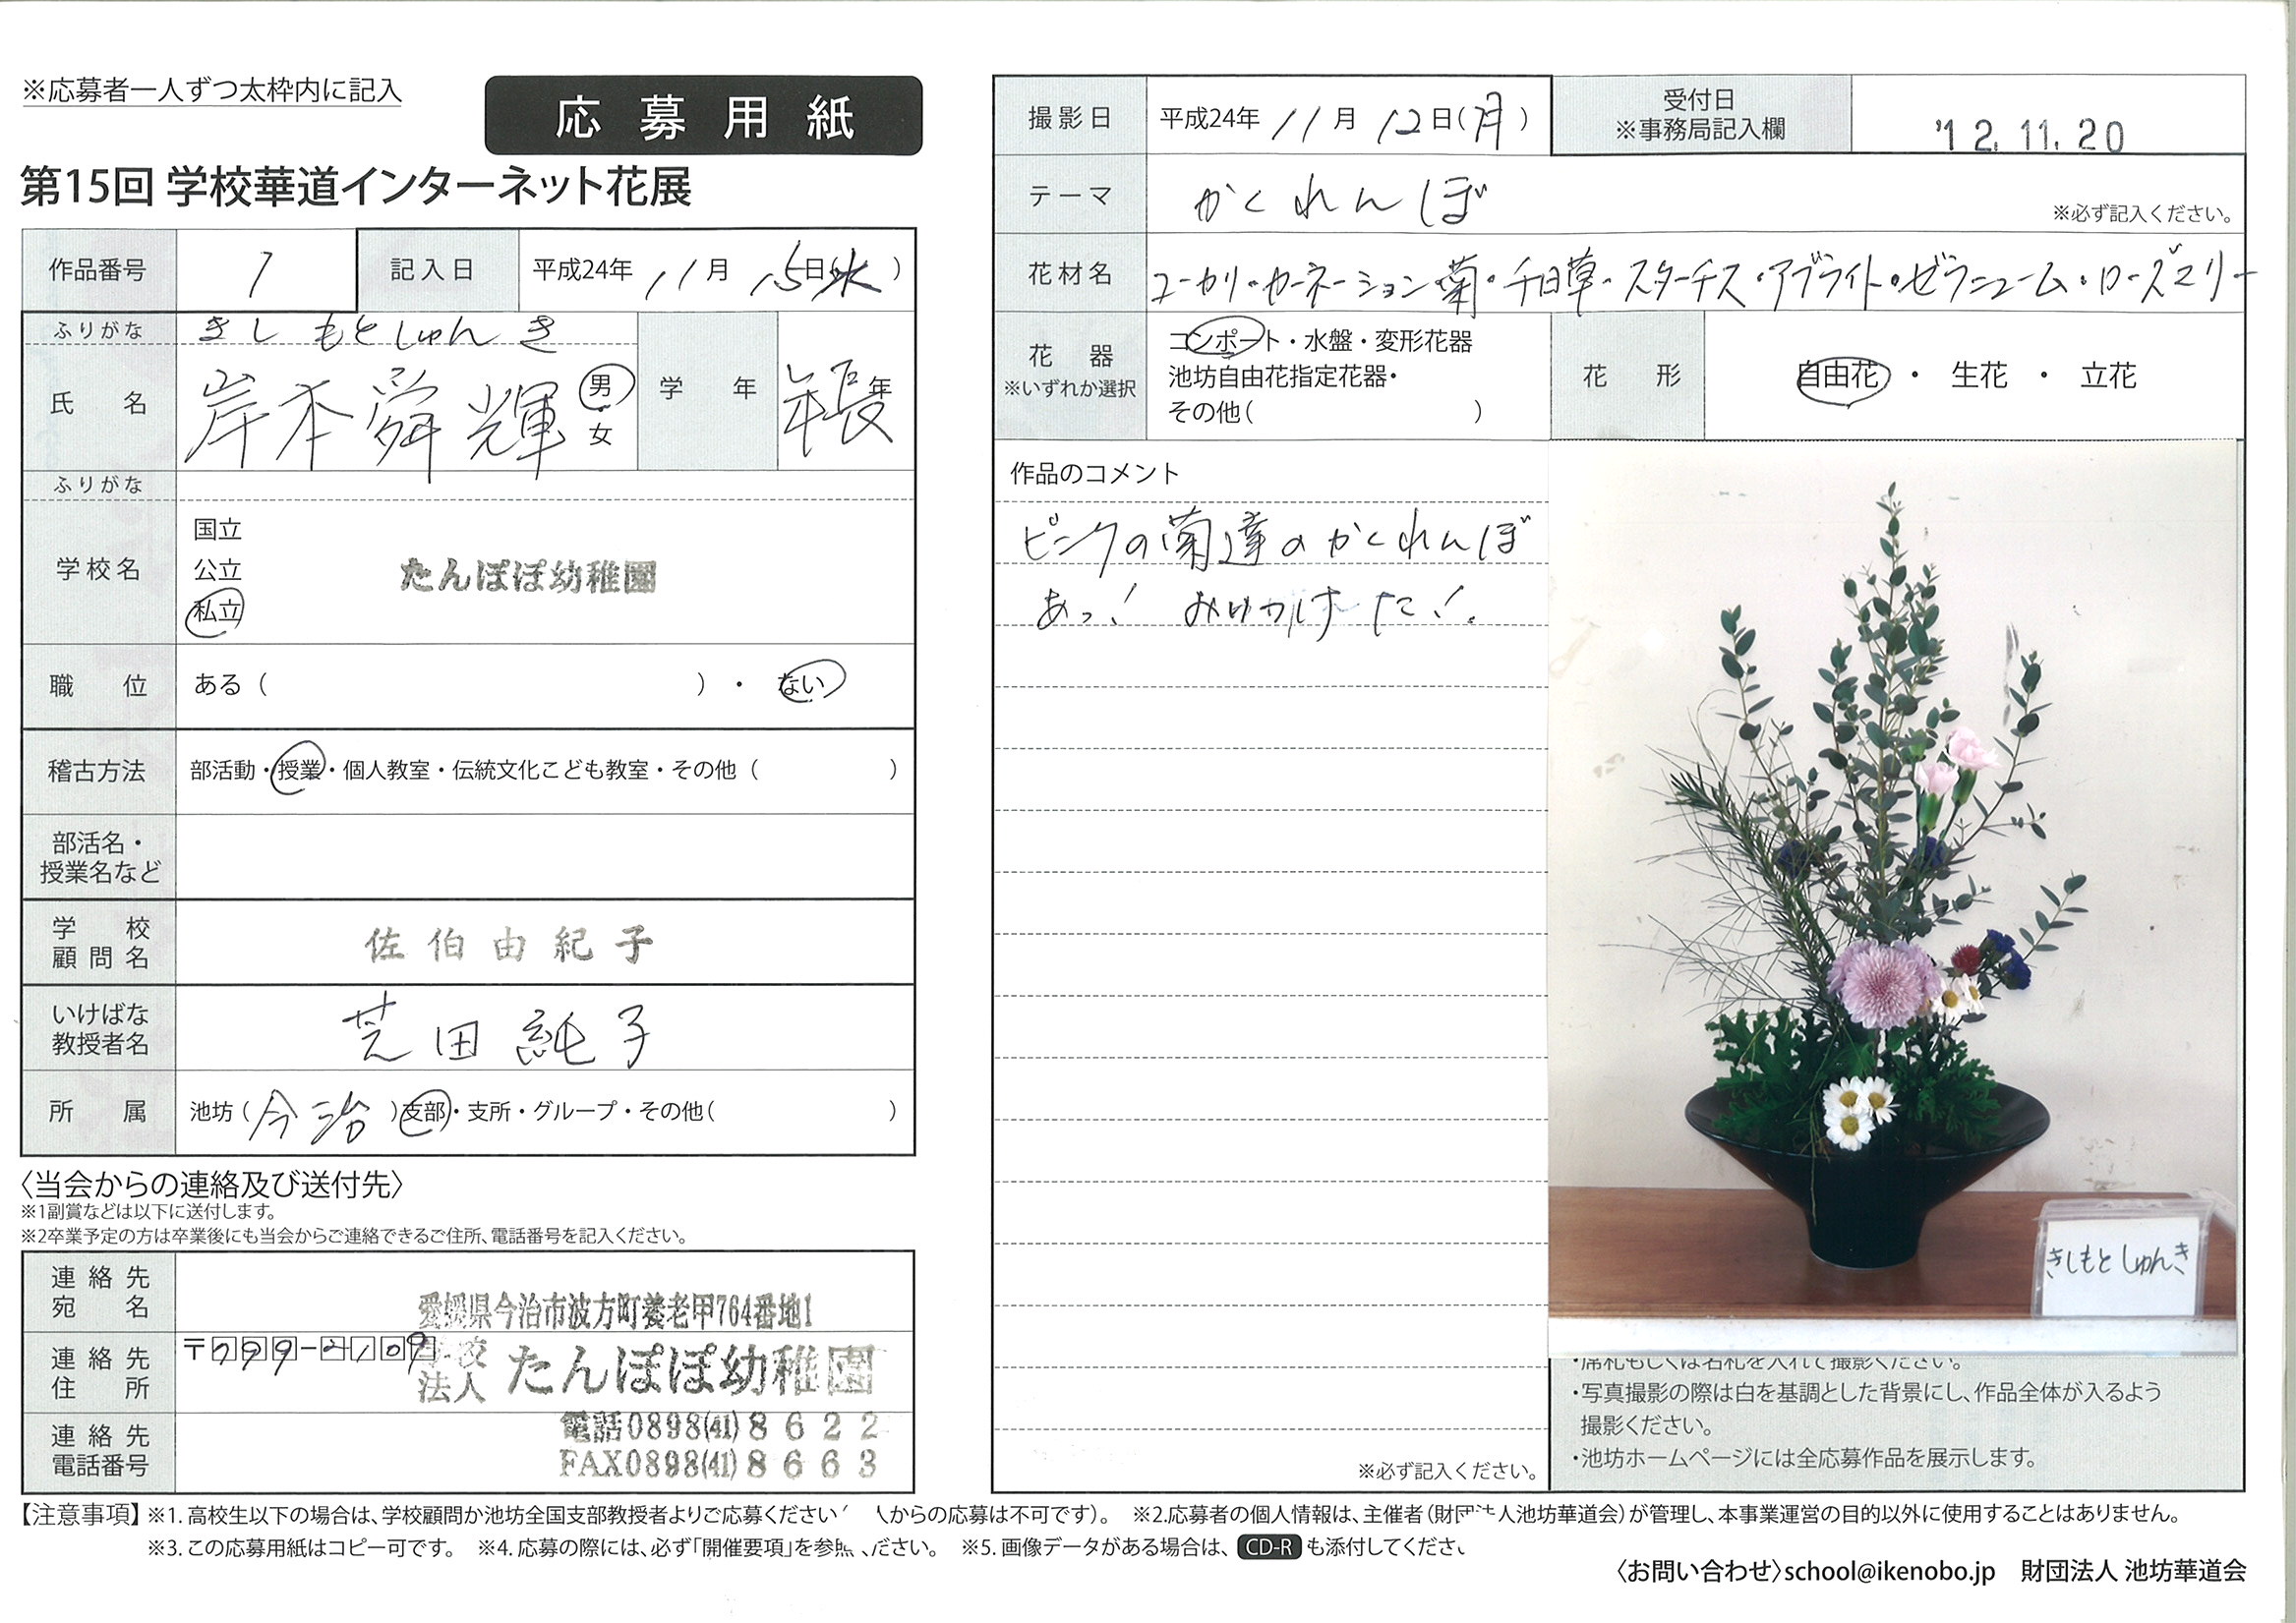 ※応募者一人ずつ太枠内に記入
応募用紙
第15回 学校華道インターネット花展
作品番号 1 記入日 平成24年 11月 15日( )
ふりがな きしもとしゅんき
氏名 岸本舜輝 男 女 学年 年長年
ふりがな
学校名 国立 公立 私立 たんぽぽ幼稚園
職位 ある( )・ ない
稽古方法 部活動・授業・個人教室・伝統文化こども教室・その他( )
部活名・
授業名など
学校
顧問名 佐伯由紀子
いけばな
教授者名 芝田純子
所属 池坊(今治)支部・支所・グループ・その他( )
〈当会からの連絡及び送付先〉
※1副賞などは以下に送付します。
※2卒業予定の方は卒業後にも当会からご連絡できるご住所、電話番号を記入ください。
連絡先
宛名
愛媛県今治市波方町養老甲764番地1
連絡先
住所 〒799-2109
学校法人 たんぽぽ幼稚園
連絡先
電話番号
電話0898(41)8622
FAX0898(41)8663
撮影日 平成24年 11月 12日(月)
受付日
※事務局記入欄 '12.11.20
テーマ かくれんぼ ※必ず記入ください。
花材名 ユーカリ・カーネーション・菊・千日草・スターチス・アブライト・ゼラニューム・ローズマリー
花器
※いずれか選択
コンポート・水盤・変形花器
池坊自由花指定花器・
その他( )
花形 自由花 ・ 生花 ・ 立花
作品のコメント
ピンクの菊達のかくれんぼ
あっ!
※必ず記入ください。
きしもとしゅんき
・席札もしくは名札を入れて撮影ください。
・写真撮影の際は白を基調とした背景にし、作品全体が入るよう
撮影ください。
・池坊ホームページには全応募作品を展示します。
【注意事項】※1. 高校生以下の場合は、学校顧問か池坊全国支部教授者よりご応募ください 人からの応募は不可です)。 ※2.応募者の個人情報は、主催者(財団法人池坊華道会)が管理し、本事業運営の目的以外に使用することはありません。
※3. この応募用紙はコピー可です。 ※4. 応募の際には、必ず「開催要項」を参照ください。 ※5. 画像データがある場合は、CD-Rも添付してくださ
〈お問い合わせ〉school@ikenobo.jp 財団法人 池坊華道会